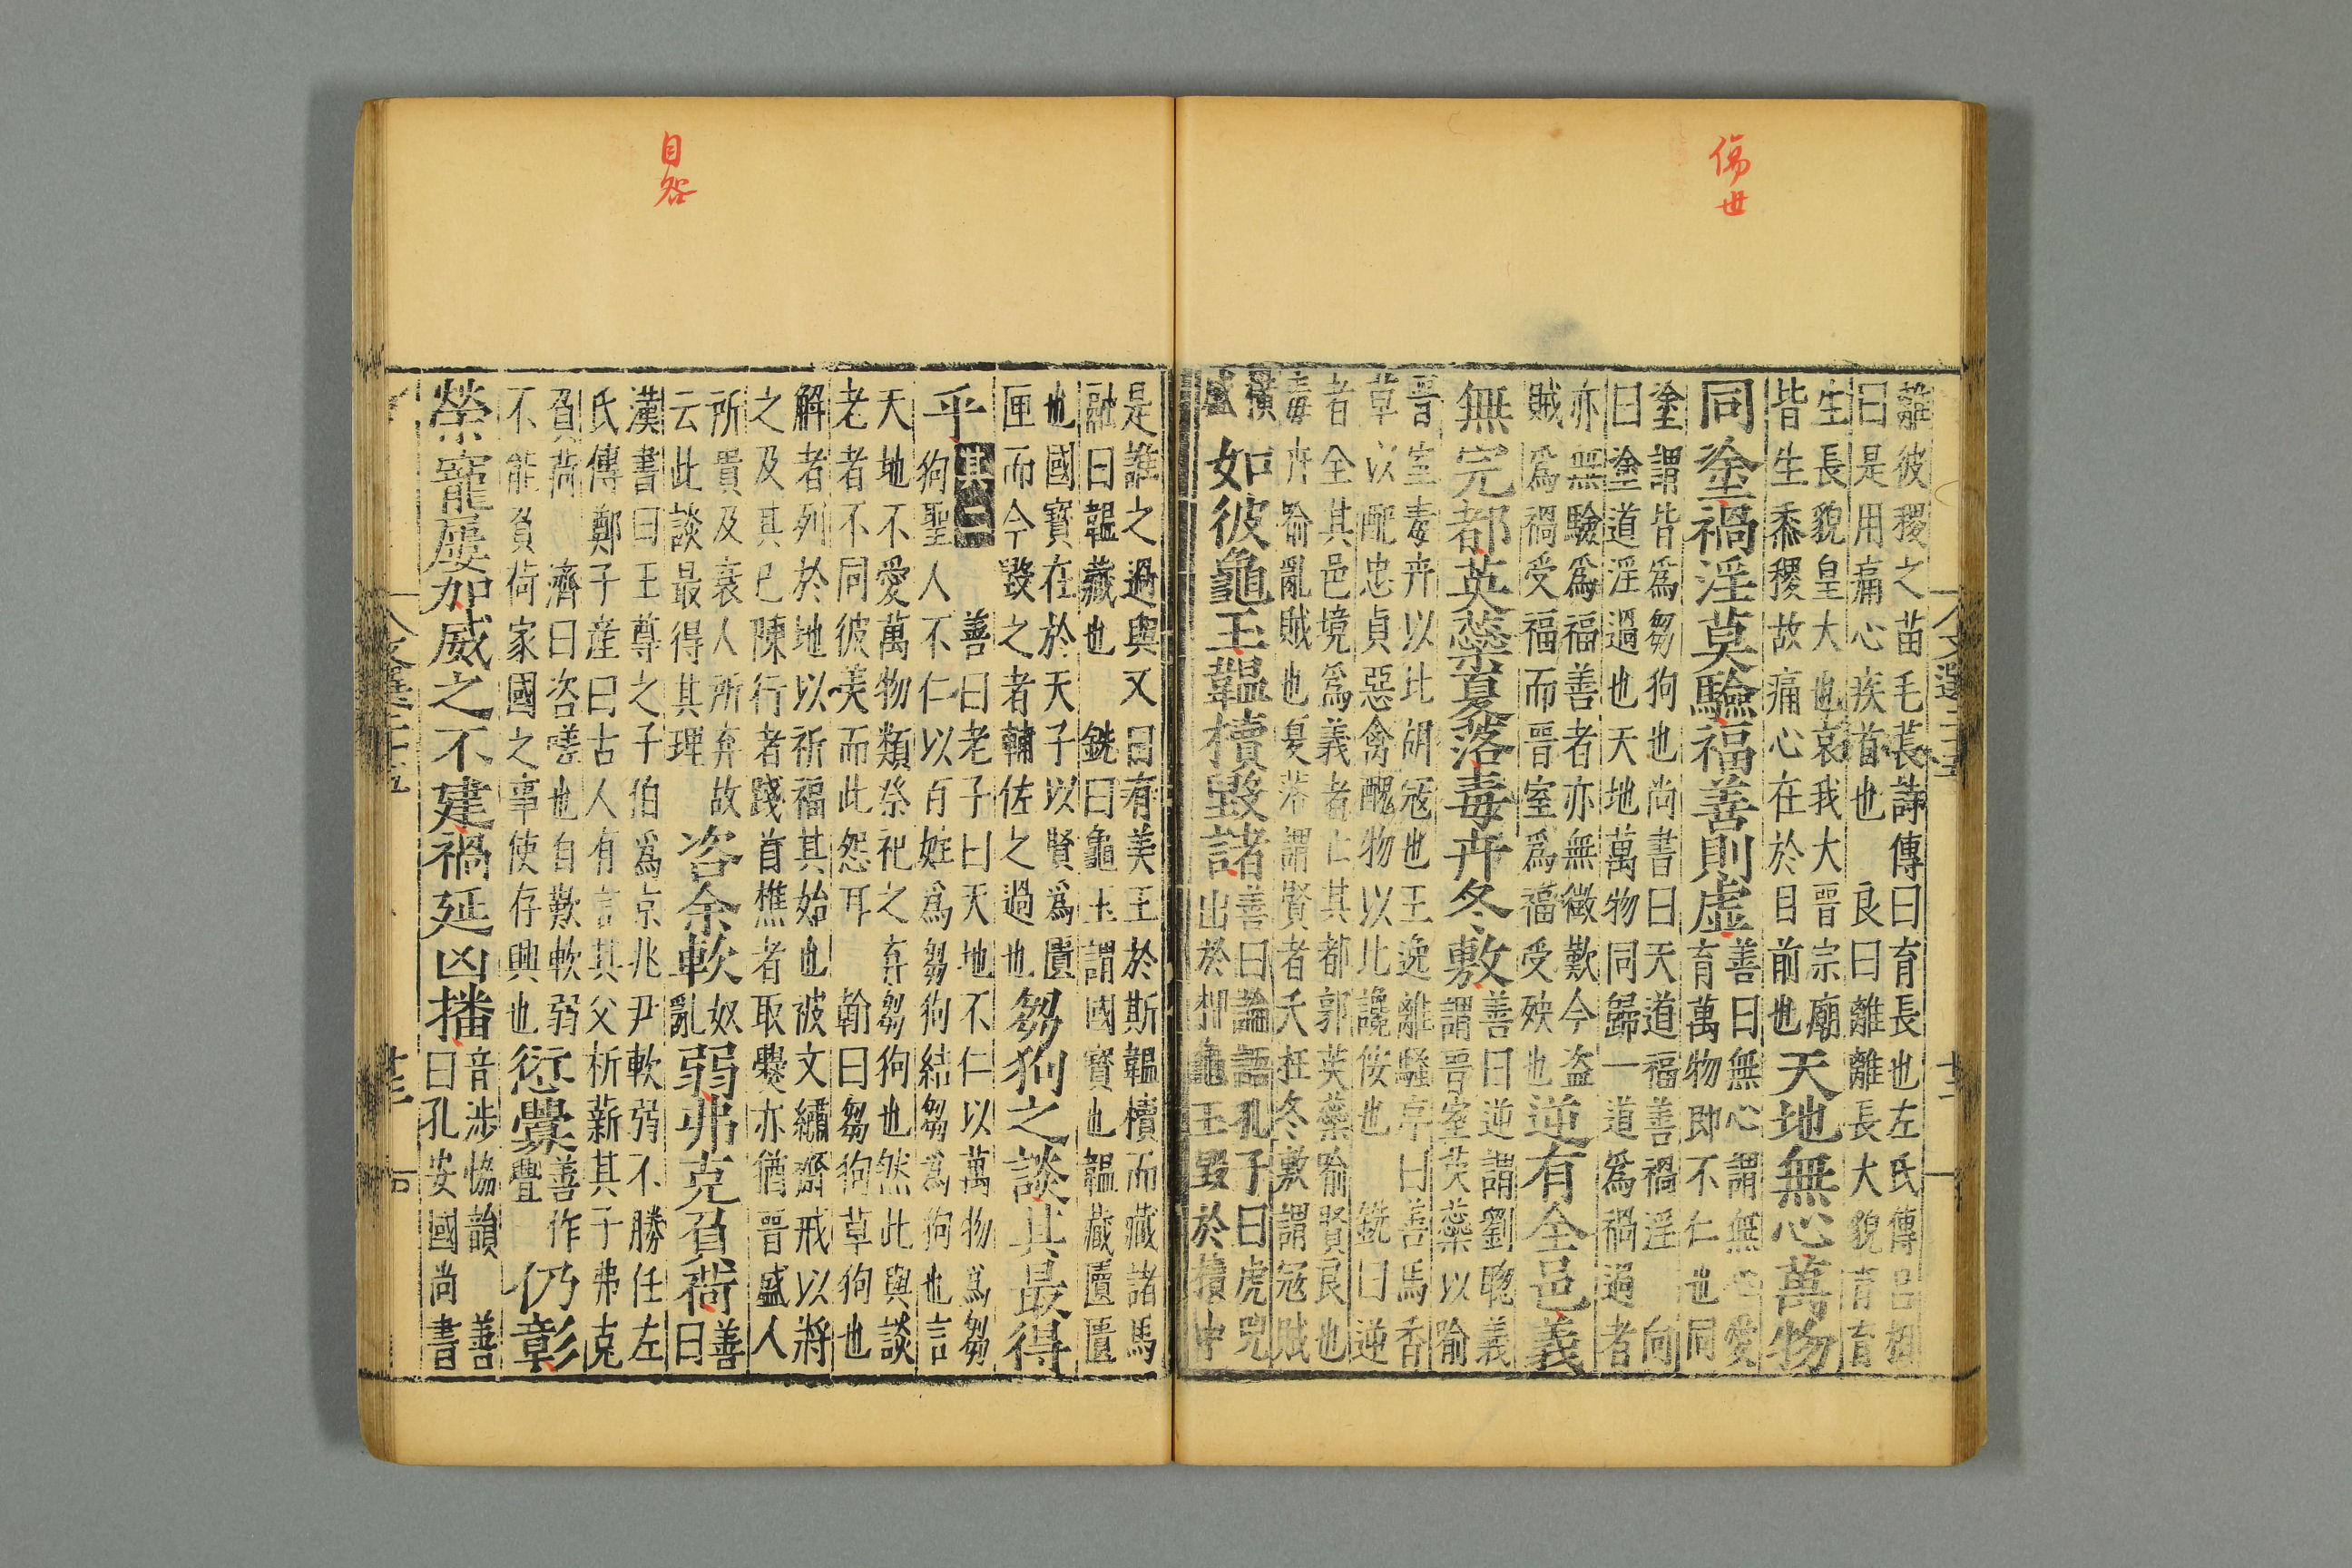 傷世
離彼稷之苗毛萇詩傳曰育長也左氏傳呂相
曰是用痛心疾首也　良曰離離長大貌育育
生長貌皇大也哀我大晉宗廟
皆生黍稷故痛心在於目前也
天地無心萬物
同塗禍淫莫驗福善則虛
善曰無心謂無心愛
育萬物即不仁也同
塗謂皆爲芻狗也尚書曰天道福善禍淫　向
曰塗道淫過也天地萬物同歸一道爲禍過者
亦無驗爲福善者亦無徵歎今盜
賊爲禍受福而晉室爲福受殃也
逆有全邑義
無完都英蘂夏落毒卉冬敷
善曰逆謂劉聰義
謂晉室英蘂以喻
晉室毒卉以比胡冦也王逸離騷序曰善馬香
草以配忠貞惡禽醜物以比讒佞也　銑曰逆
者全其邑境爲義者亡其都郭英蘂喻賢良也
毒卉喻亂賊也夏落謂賢者夭枉冬敷謂冦賊
橫
盛
如彼龜玉韞櫝毀諸
善曰論語孔子曰虎兕
出於柙龜玉毀於櫝中
文選二十五
十二
自咎
是誰之過與又曰有美玉於斯韞櫝而藏諸馬
融曰韞藏也　銑曰龜玉謂國寶也韞藏匱匱
也國寳在於天子以賢爲匱
匣而今毀之者輔佐之過也
芻狗之談其最得
乎
其二
善曰老子曰天地不仁以萬物爲芻
狗聖人不仁以百姓爲芻狗結芻爲狗也言
天地不愛萬物類祭祀之弃芻狗也然此與談
老者不同彼美而此怨耳　翰曰芻狗草狗也
解者列於地以祈福其始也被文繡齋戒以將
之及其已陳行者踐首樵者取㸑亦猶晉盛人
所貴及衰人所弃故
云此談最得其理
咨余軟
奴
亂
弱弗克負荷
善
曰
漢書曰王尊之子伯爲京兆尹軟弱不勝任左
氏傳鄭子產曰古人有言其父析薪其子弗克
負荷　濟曰咨嗟也自歎軟弱
不能負荷家國之事使存興也
愆舋
善作
亹
仍彰
榮寵屢加威之不建禍延凶播
音涉恊韻　善
曰孔安國尚書